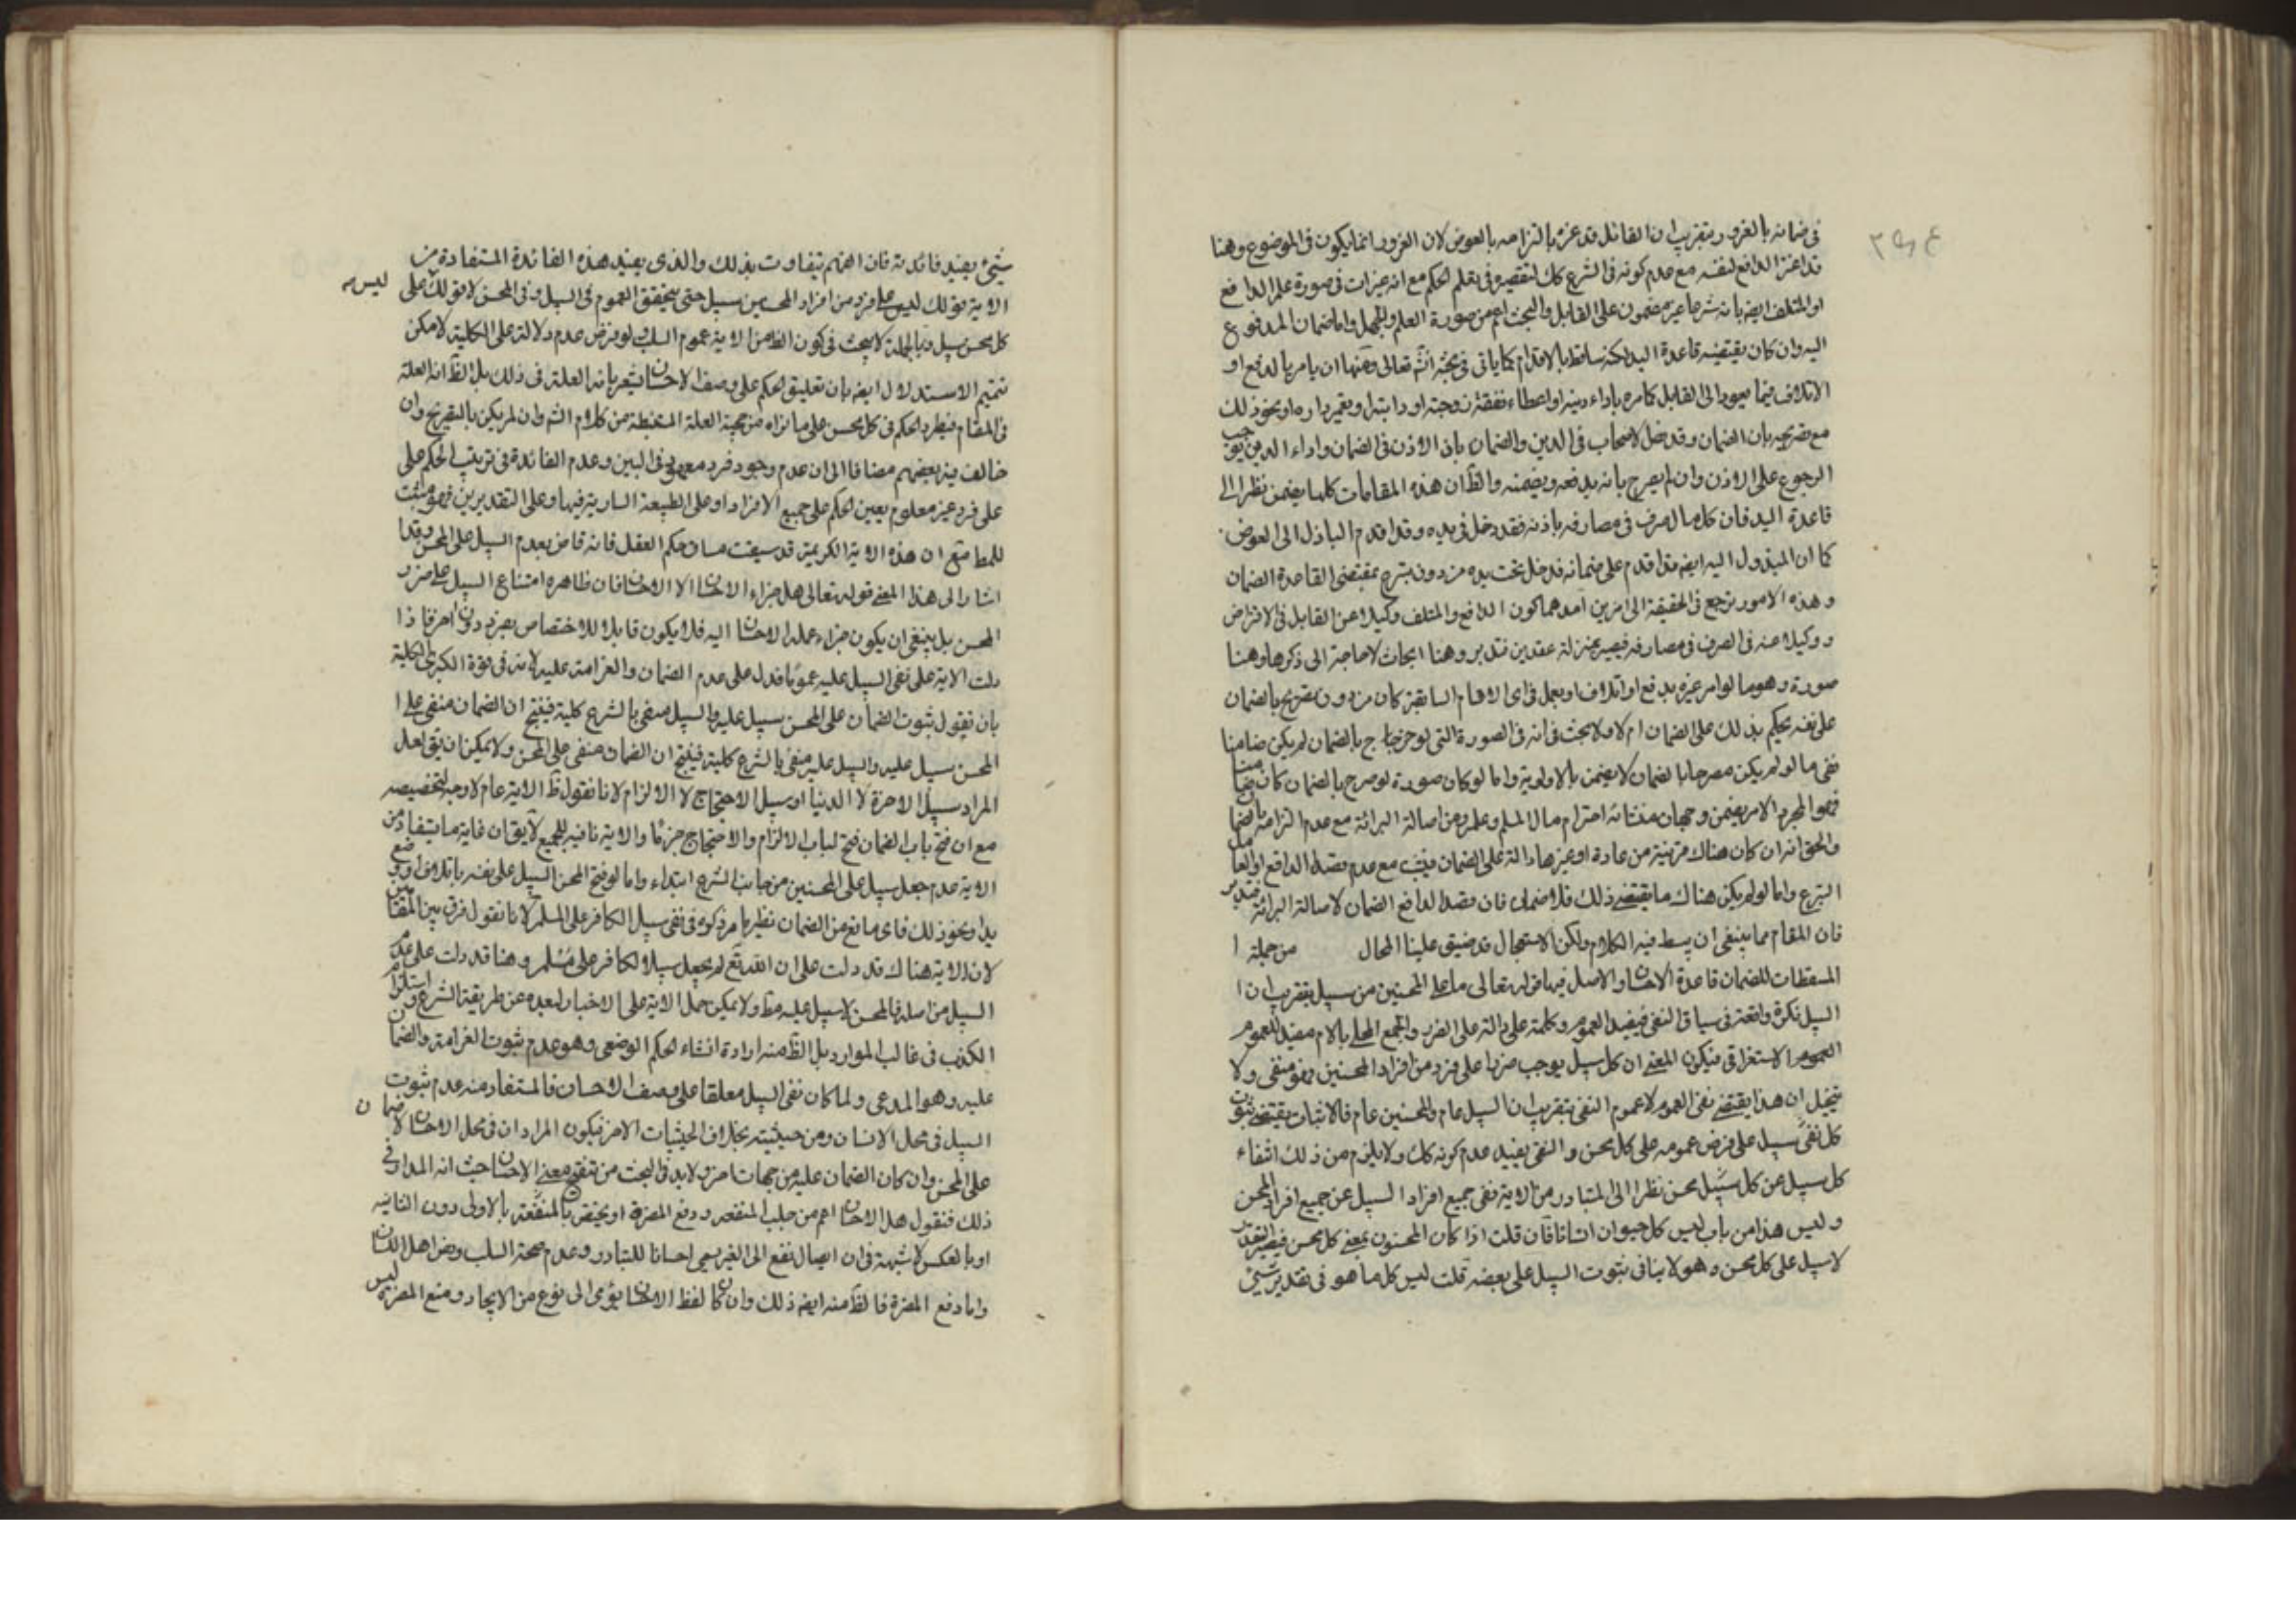 في ضمانه بالغرور بتقريب ان القائل قد غره بالتزامه بالعوض لان الغرور انما يكون في الموضوع وهنا
قد اغتر الدافع لنفسه مع عدم كونه في الشرع كك لتقصيره في تعلم الحكم مع انه غير ات في صورة علم الدافع
او المتلف ايضه بانه شرعا غير مضمون على القابل والبحث اعم من صورة العلم والجهل واما ضمان المدفوع
اليه وان كان يقتضيه قاعدة اليد لكنه ساقط بالاقدام كما ياتى في بحثه انش تعالى ومنها ان يامر بالدفع او
الاتلاف فيما يعود الى القابل كامره باداء دينه او اعطاء نفقة زوجته او دابته او تعمير داره او نحو ذلك
مع تصريحه بان الضمان وقد دخل الاصحاب في الدين والضمان بان الاذن في الضمان واداء الدين يوجب
الرجوع على الاذن وان لم يصرح بانه يدفعه ويضمنه والظ ان هذه المقامات كلها يضمن نظرا الى
قاعدة اليد فان كل مال صرف في مصارفه باذنه فقد دخل في يده وقد اقدم الباذل الى العوض
كما ان المبذول اليه ايضه قد اقدم على ضمانه فدخل تحت يده من دون تبرع بمقتضى القاعدة الضمان
وهذه الامور ترجع في الحقيقة الى امرين احدهما كون الدافع والمتلف وكيلا عن القابل في الاقتراض
ووكيلا عنه في الصرف في مصارفه فيصير بمنزلة عقدين فتدبر وهنا ابحاث لا حاجة الى ذكرها وهنا
صورة وهو ما لو امر غيره بدفع او اتلاف او بعمل في اى الاقسام السابقة كان من دون تصريح بالضمان
على نفسه يحكم بذلك على الضمان ام لا ولا بحث في انه في الصورة التى لو صرح بالضمان لم يكن ضامنا
ففى ما لو لم يكن مصرحا بالضمان لا يضمن بالاولوية واما لو كان صورة لو صرح بالضمان كان ضامنا
فهو المجرد الامر يضمن وجهان منشائه احترام مال المسلم وعمله ومن اصالة البرائة مع عدم التزامه بالضمان
والحق انه ان كان هناك قرينة من عادة او غيرها دالة على الضمان فيثبت مع عدم قصد الدافع او العامل
التبرع واما لو لم يكن هناك ما يقتضى ذلك فلا ضمان فان قصد الدافع الضمان لاصالة البرائة فتدبر
فان المقام مما ينبغى ان يبسط فيه الكلام ولكن الاستعجال قد ضيق علينا المجال من جملة ا
المسقطات للضمان قاعدة الاحسان والاصل فيها قوله تعالى ما على المحسنين من سبيل بتقريب ان ا
السبيل نكرة واقعة في سياق النفى فيفيد العموم وكلمة على دالة على الضرر والجمع المحلى باللام مفيد للعموم
العموم الاستغراقى فيكون المعنى ان كل سبيل يوجب ضررا على فرد من افراد المحسنين فهو منفى ولا
يتخيل ان هذا يقتضى نفى العموم لا عموم النفى بتقريب ان السبيل عام والمحسنين عام فالاثبات يقتضى ثبوت
كل سبيل على فرض عمومه على كل محسن والنفى يفيد عدم كونه كك ولا يلزم من ذلك انتفاء
كل سبيل عن كل محسن نظرا الى المتبادر من الاية نفى جميع افراد السبيل عن جميع افراد المحسن
وليس هذا من باب ليس كل حيوان انسانا فان قلت اذا كان المحسنون بمعنى كل محسن فيصير التقدير
لا سبيل على كل محسن وهو لا ينافى ثبوت السبيل على بعضه قلت ليس كل ما هو في تقدير شئ
شئ يفيد فائدته فان الفهم يتفاوت بذلك والذى يفيد هذه الفائدة المستفادة من
الاية قولك ليس على فرد من افراد المحسنين سبيل حتى يتحقق العموم في السبيل وفى المحسن لا قولك على
ليس
كل محسن سبيل وبالجملة لا بحث في كون الظ من الاية عموم السلب ولو فرض عدم دلالته على الكلية لامكن
تتميم الاستدلال ايضه بان تعليق الحكم على وصف الاحسان يشعر بانه العلة في ذلك بل الظ انه العلة
في المقام فيطرد الحكم في كل محسن على ما نراه من حجية العلة المستنبطة من كلام الش وان لم يكن بالتصريح وان
خالف فيه بعضهم مضافا الى ان عدم وجود فرد معهود في البين وعدم الفائدة في ترتيب الحكم على
على فرد غير معلوم يعين الحكم على جميع الافراد او على الطبيعة السارية فيها وعلى التقديرين فهو مثبت
للمط مع ان هذه الاية الكريمة قد سيقت مساق حكم العقل فانه قاض بعدم السبيل على المحسن وقد ا
اشار الى هذا المعنى قوله تعالى هل جزاء الاحسان الا الاحسان فان ظاهره امتناع السبيل على ضرر
المحسن بل ينبغى ان يكون جزاء عمله الاحسان اليه فلا يكون قابلا للاختصاص بفرد دون اخر فاذا
دلت الاية على نفى السبيل عليه عموما فدل على عدم الضمان والغرامة عليه لانه في قوة الكبرى الكلية
بان نقول ثبوت الضمان على المحسن سبيل عليه والسبيل منفى بالشرع كلية فينتج ان الضمان منفى على ا
المحسن سبيل عليه والسبيل عليه منفى بالشرع كلية فينتج ان الضمان منفى على المحسن ولا يمكن ان يق لعل
المراد سبيل الاخرة لا الدنيا او سبيل الاحتجاج لا الالزام لانا نقول ظ الاية عام لا وجه لتخصيصه
مع ان فتح باب الضمان فتح لباب الالزام والاحتجاج جزما والاية نافية للجميع لا يق ان غاية ما يستفاد من
الاية عدم جعل سبيل على المحسنين من جانب الشرع ابتداء واما لو فتح المحسن السبيل على نفسه باتلاف او وضع
يد او نحو ذلك فاى مانع من الضمان نظير ما مر ذكره في نفى سبيل الكافر على المسلم لانا نقول فرق بين المقامين
لان الاية هناك قد دلت على ان الله تع لم يجعل سبيلا لكافر على مسلم وهنا قد دلت على عدم
السبيل من اصله فالمحسن لا سبيل عليه مط ولا يمكن حمل الاية على الاخبار لبعده عن طريقة الشرع واستلزام
الكذب في غالب الموارد بل الظ منه ارادة انشاء الحكم الوضعى وهو عدم ثبوت الغرامة والضمان
عليه وهو المدعى ولما كان نفى السبيل معلقا على وصف الاحسان فالمستفاد منه عدم ثبوت
السبيل في محل الاحسان ومن حيثيته بخلاف الحيثيات الاخر فيكون المراد ان في محل الاحسان لا ضمان
على المحسن وان كان الضمان عليه من جهات اخر ولا بد في البحث من تنقيح معنى الاحسان حيث انه المدار في
ذلك فنقول هل الاحسان اعم من جلب المنفعة ودفع المضرة او يختص بالمنفعة بالاولى دون الثانيه
او بالعكس لا شبهة في ان ايصال نفع الى الغير يسمى احسانا للتبادر وعدم صحة السلب ونص اهل اللسان
واما دفع المضرة فالظ منه ايضه ذلك وان كان لفظ الاحسان يؤمى الى نوع من الايجاد ومنع المضرة ليس